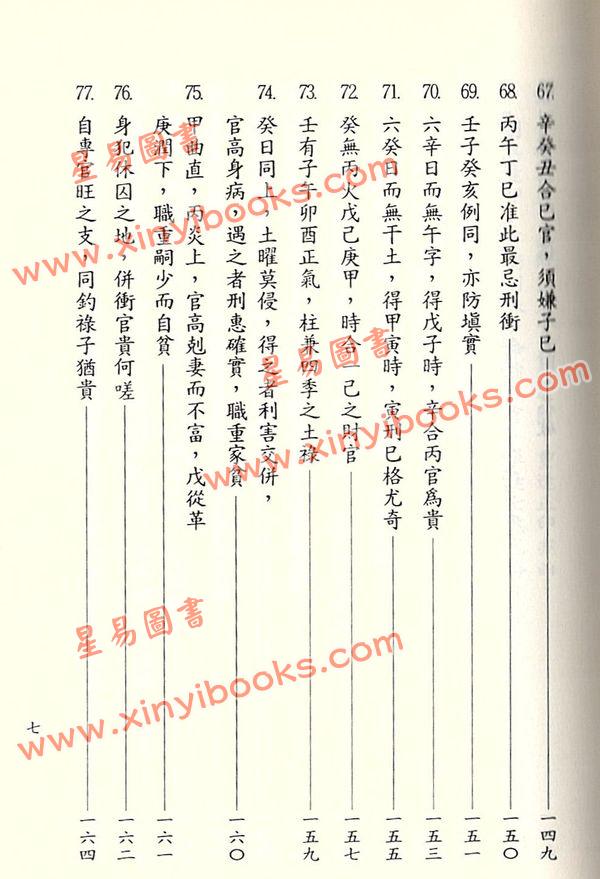 67. 辛癸丑合巳官，須嫌子巳 一四九
68. 丙午丁巳准此最忌刑衝 一五〇
69. 壬子癸亥例同，亦防塡實 一五一
70. 六辛日而無午字，得戊子時，辛合丙官爲貴 一五三
71. 六癸日而無干土，得甲寅時，寅刑巳格尤奇 一五五
72. 癸無丙火戊己庚甲，時合一己之財官 一五七
73. 壬有子午卯酉正氣，柱兼四季之土祿 一五九
74. 癸日同上，土曜莫侵，得之者利害交併，
官高身病，遇之者刑惠確實，職重家貧 一六〇
75. 甲曲直，丙炎上，官高剋妻而不富，戊從革
庚潤下，職重嗣少而自貧 一六一
76. 身犯休囚之地，併衝官貴何嗟 一六二
77. 自專官旺之支，同釣祿子猶貴 一六四
七
星易圖書
www.xinyibooks.com
星易圖書
www.xinyibooks.com
星易圖書
www.xinyibooks.com